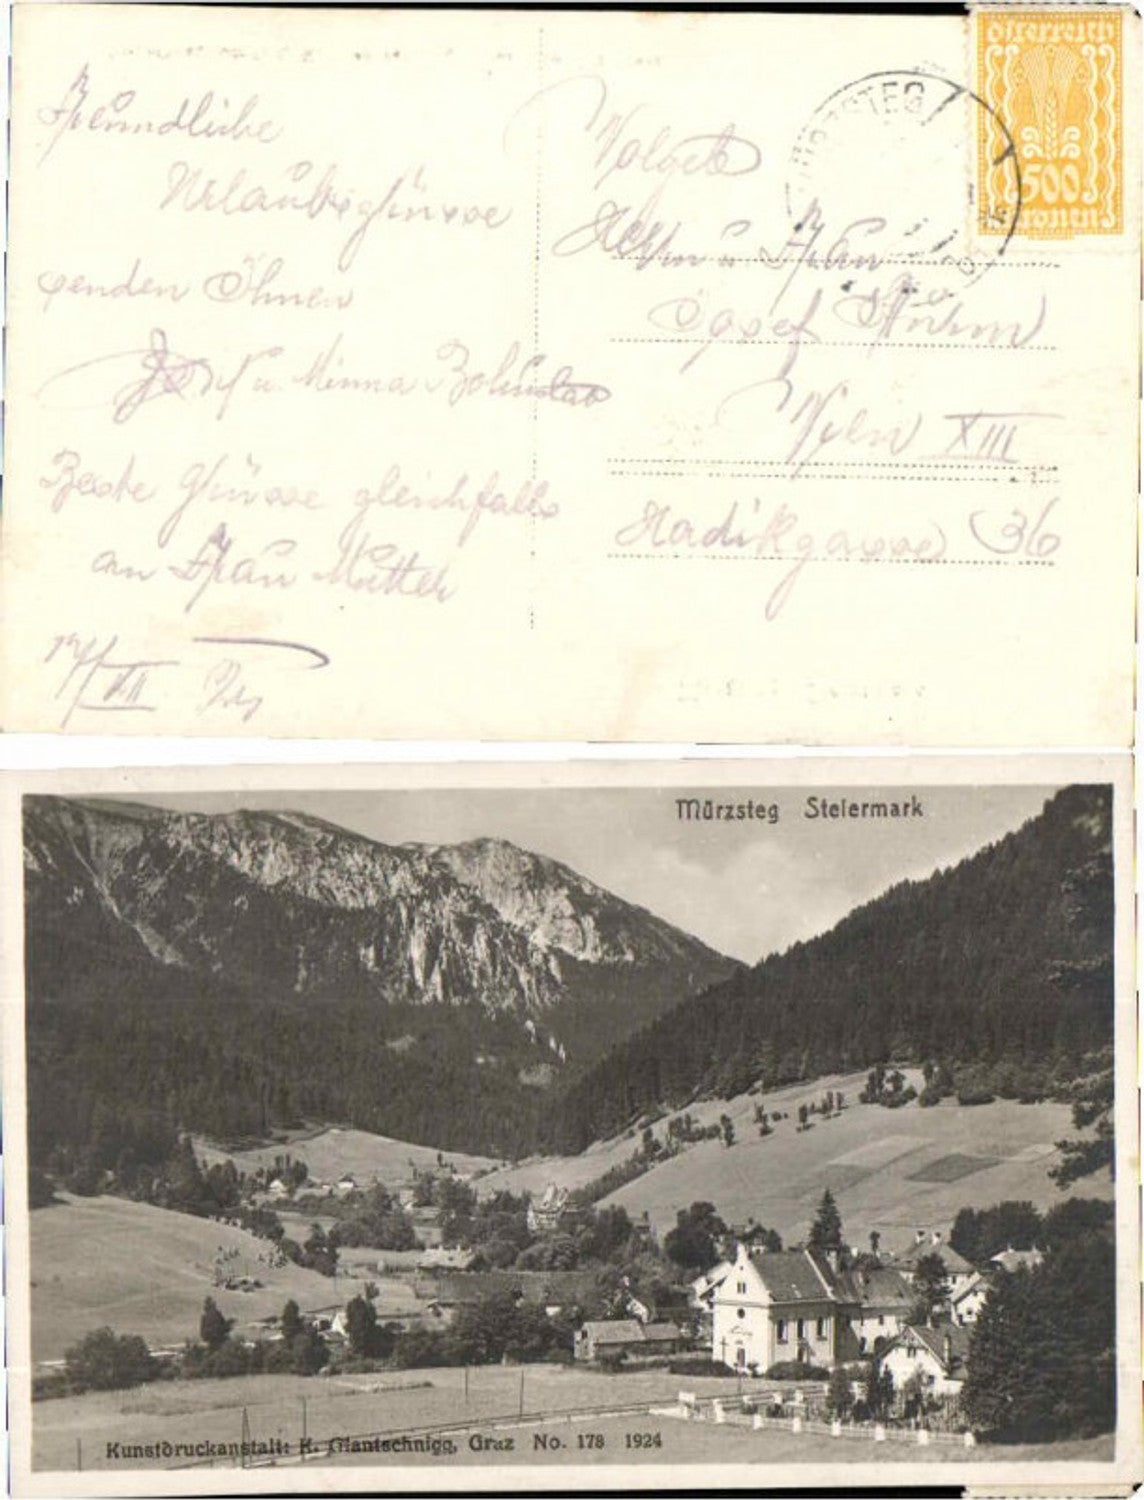 Freundliche
Urlaubsgrüsse
senden Ihnen
Josef u. Minna
Beste Grüsse gleichfalls
an Frau Mutter
Herrn u. Frau
Josef
Wien XIII
Hadikgasse 36
MÜRZSTEG
Österreich
500
Kronen
Mürzsteg Steiermark
Kunstdruckanstalt: K. Glantschnigg, Graz No. 178 1924